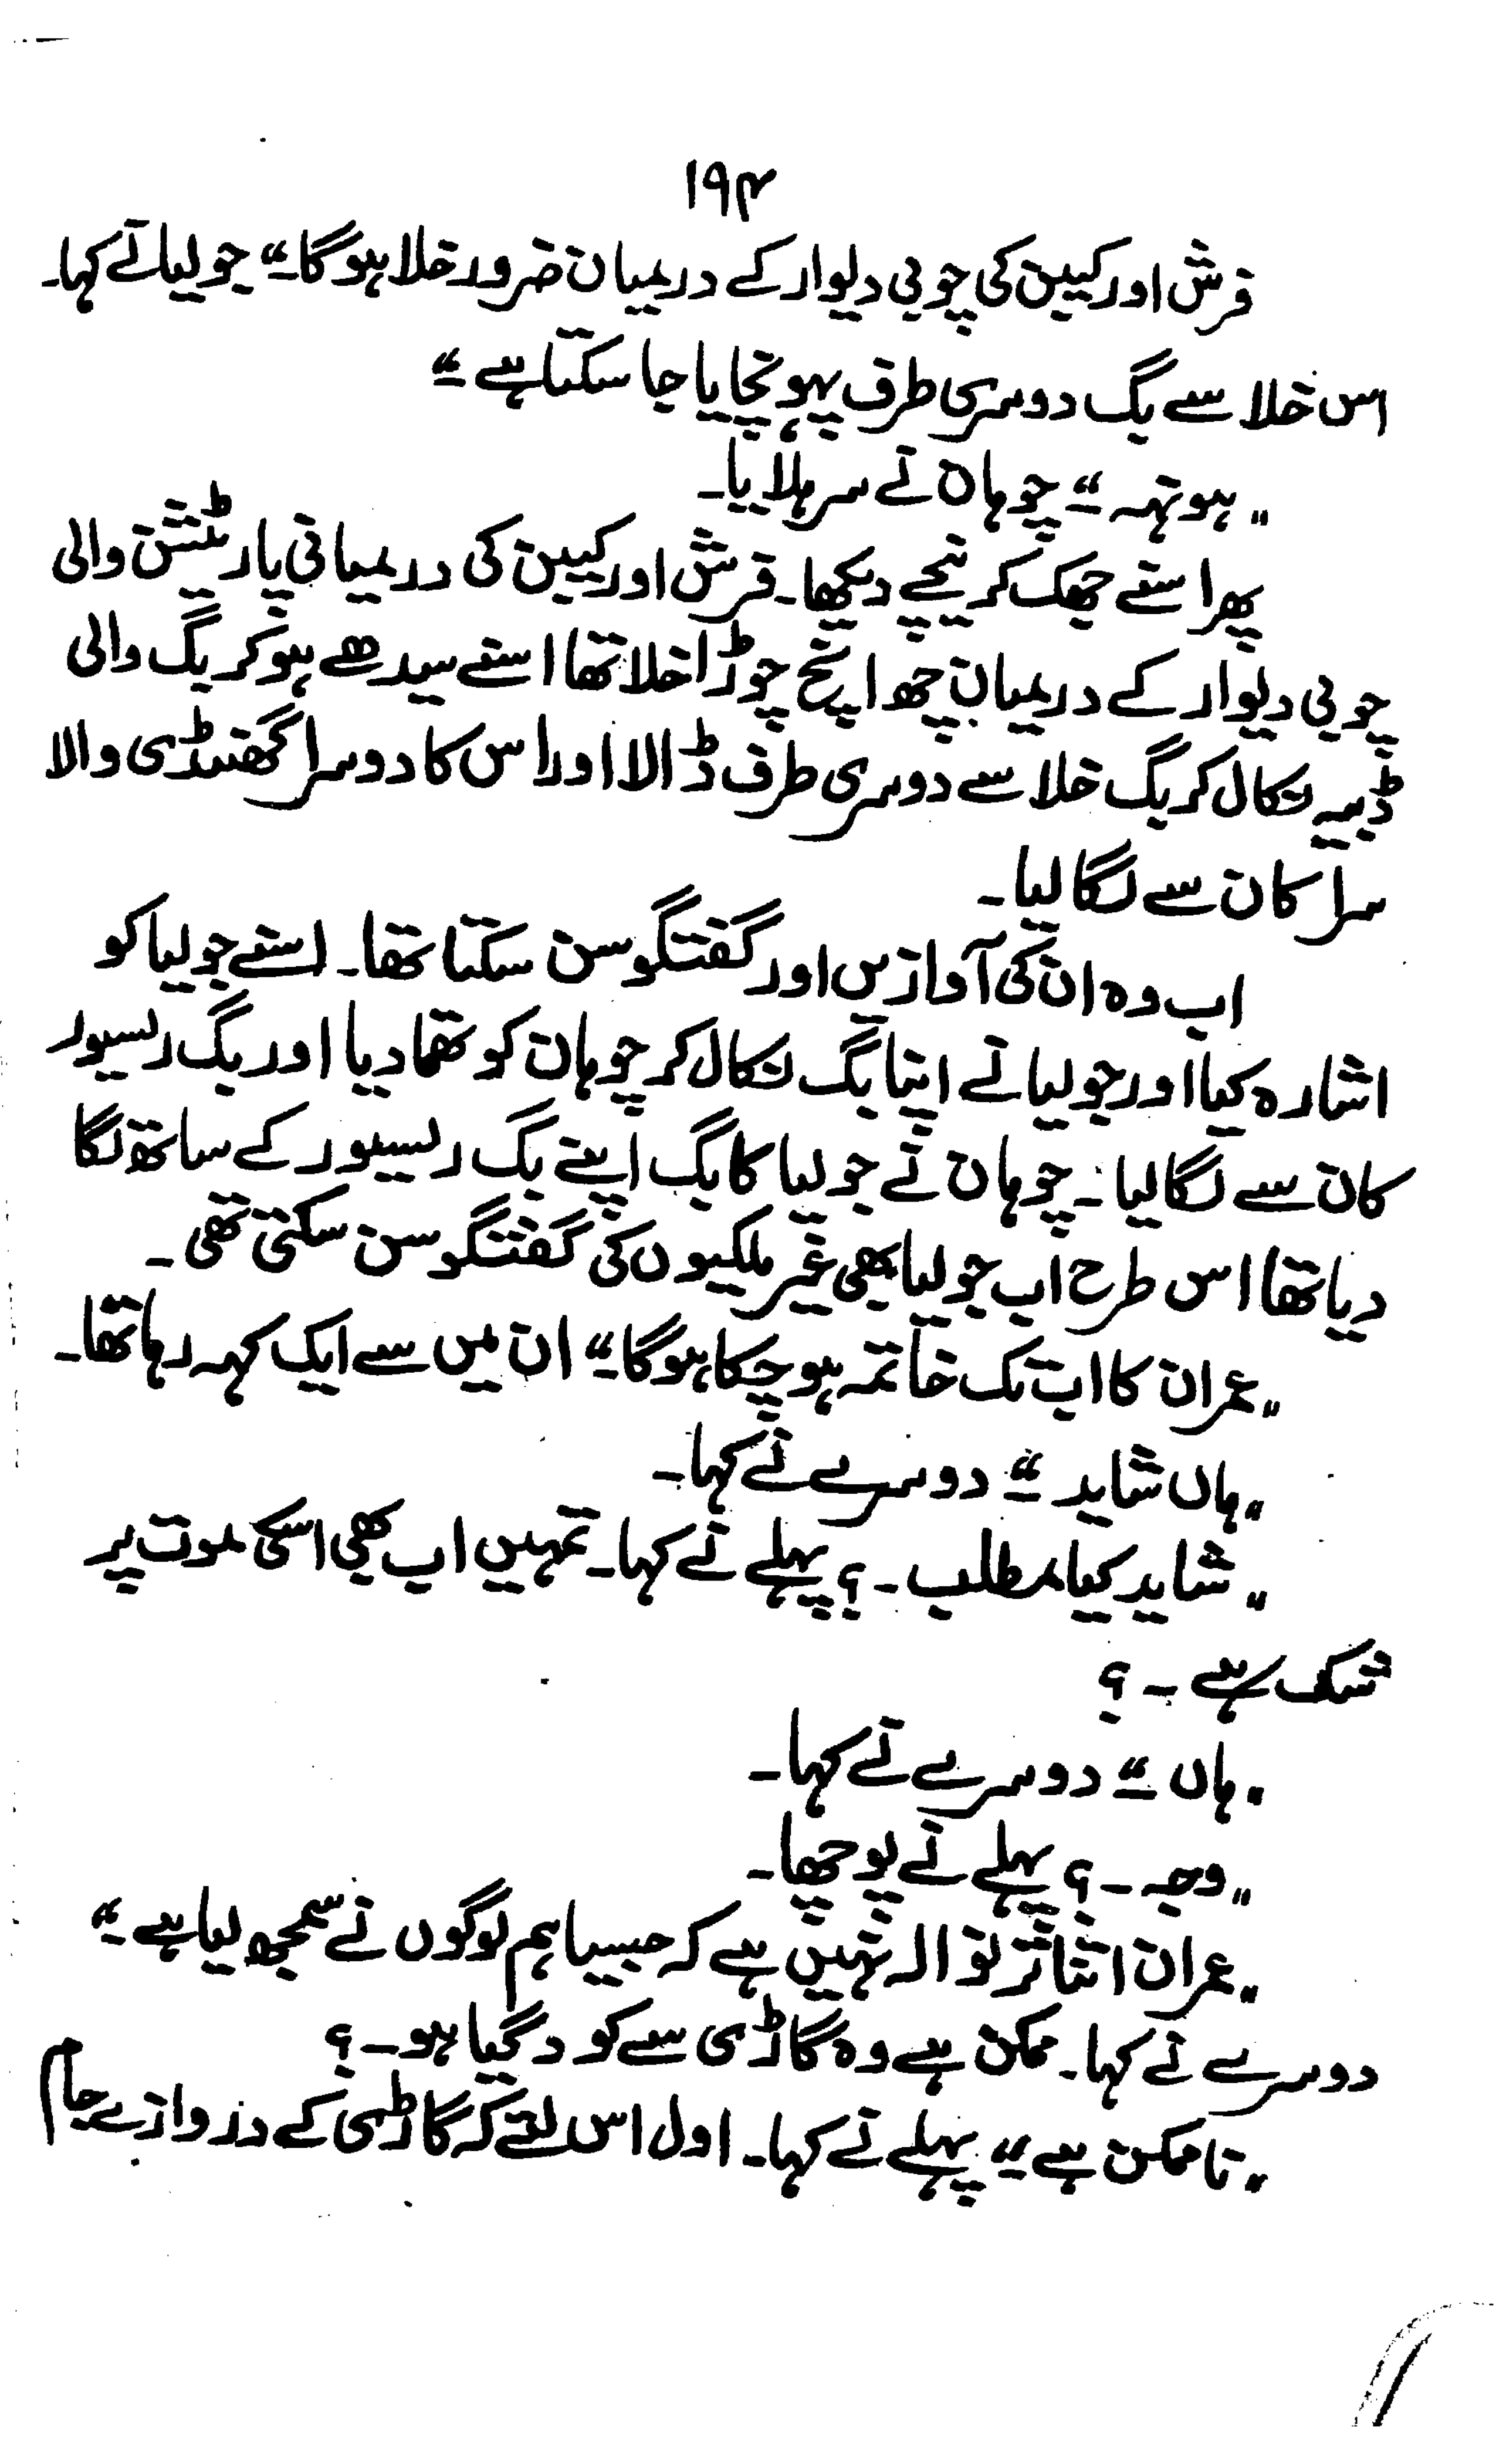 ۱۹۴
فرش اور کیبن کی چوبی دیوار کے درمیان ضرور خلا ہو گا۔“ جولیا نے کہا۔
اس خلا سے بگ دوسری طرف پہونچایا جا سکتا ہے۔“
”ہونہہ۔“ چوہان نے سر ہلایا۔
پھر اسنے جھک کر نیچے دیکھا۔ فرش اور کیبن کی درمیانی پارٹیشن والی
چوبی دیوار کے درمیان چھ اینچ چوڑا خلا تھا اسنے سیدھے ہو کر بگ والی
ڈبیہ نکال کر بگ خلا سے دوسری طرف ڈالا اور اس کا دوسرا گھنڈی والا
سرا کان سے لگا لیا۔
اب وہ ان کی آوازیں اور گفتگو سن سکتا تھا۔ اسنے جولیا کو
اشارہ کیا اور جولیا نے اپنا بگ نکال کر چوہان کو تھما دیا اور بگ رسیور
کان سے لگا لیا۔ چوہان نے جولیا کا بگ اپنے بگ رسیور کے ساتھ لگا
دیا تھا اس طرح اب جولیا بھی غیر ملکیوں کی گفتگو سن سکتی تھی۔
”عمران کا اب تک خاتمہ ہو چکا ہو گا۔“ ان میں سے ایک کہہ رہا تھا۔
”ہاں شاید۔“ دوسرے نے کہا۔
”شاید کیا مطلب۔؟ پہلے نے کہا۔ تمہیں اب بھی اسکی موت پر
شک ہے۔؟
”ہاں۔“ دوسرے نے کہا۔
”وجہ۔؟ پہلے نے پوچھا۔
”عمران اتنا تر نوالہ نہیں ہے کہ جیسا ہم لوگوں نے سمجھ لیا ہے۔“
دوسرے نے کہا۔ ممکن ہے وہ گاڑی سے کود گیا ہو۔؟
”ناممکن ہے۔“ پہلے نے کہا۔ اول اس لئے کہ گاڑی کے دروازے جام